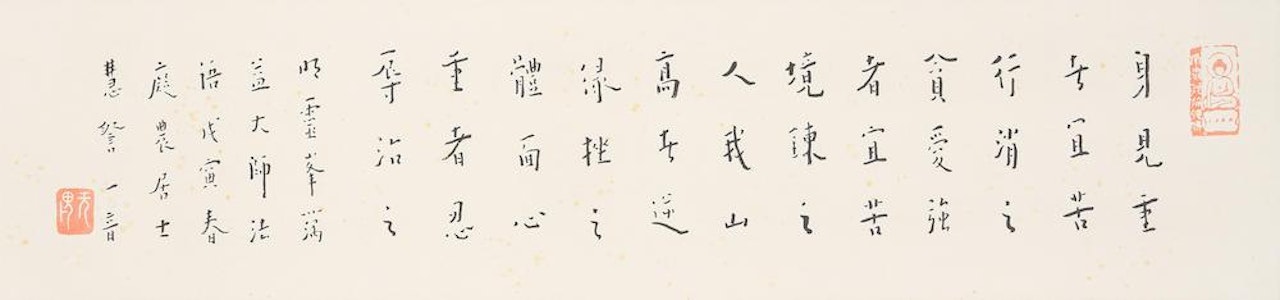 身見重
者宜苦
行消之
貪愛強
者宜苦
境鍊之
人我山
高者逆
緣挫之
體面心
重者忍
辱治之
明靈峯蕅
益大師法
語戊寅春
農居士
慧詧一音